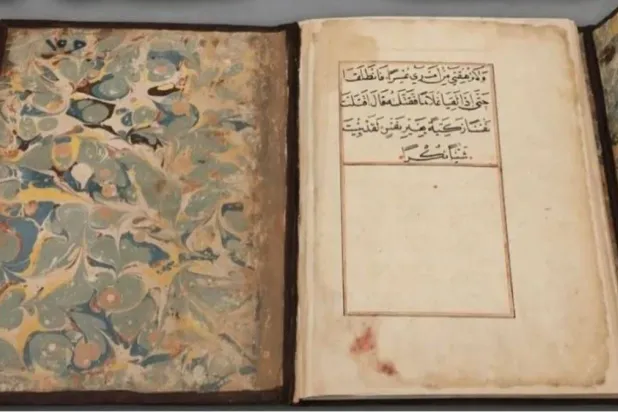 ولا ترهقني من امري عسرا فانطلقا
حتى اذا لقيا غلاما فقتله قال اقتلت
نفسا زكية بغير نفس لقد جئت
شيئا نكرا